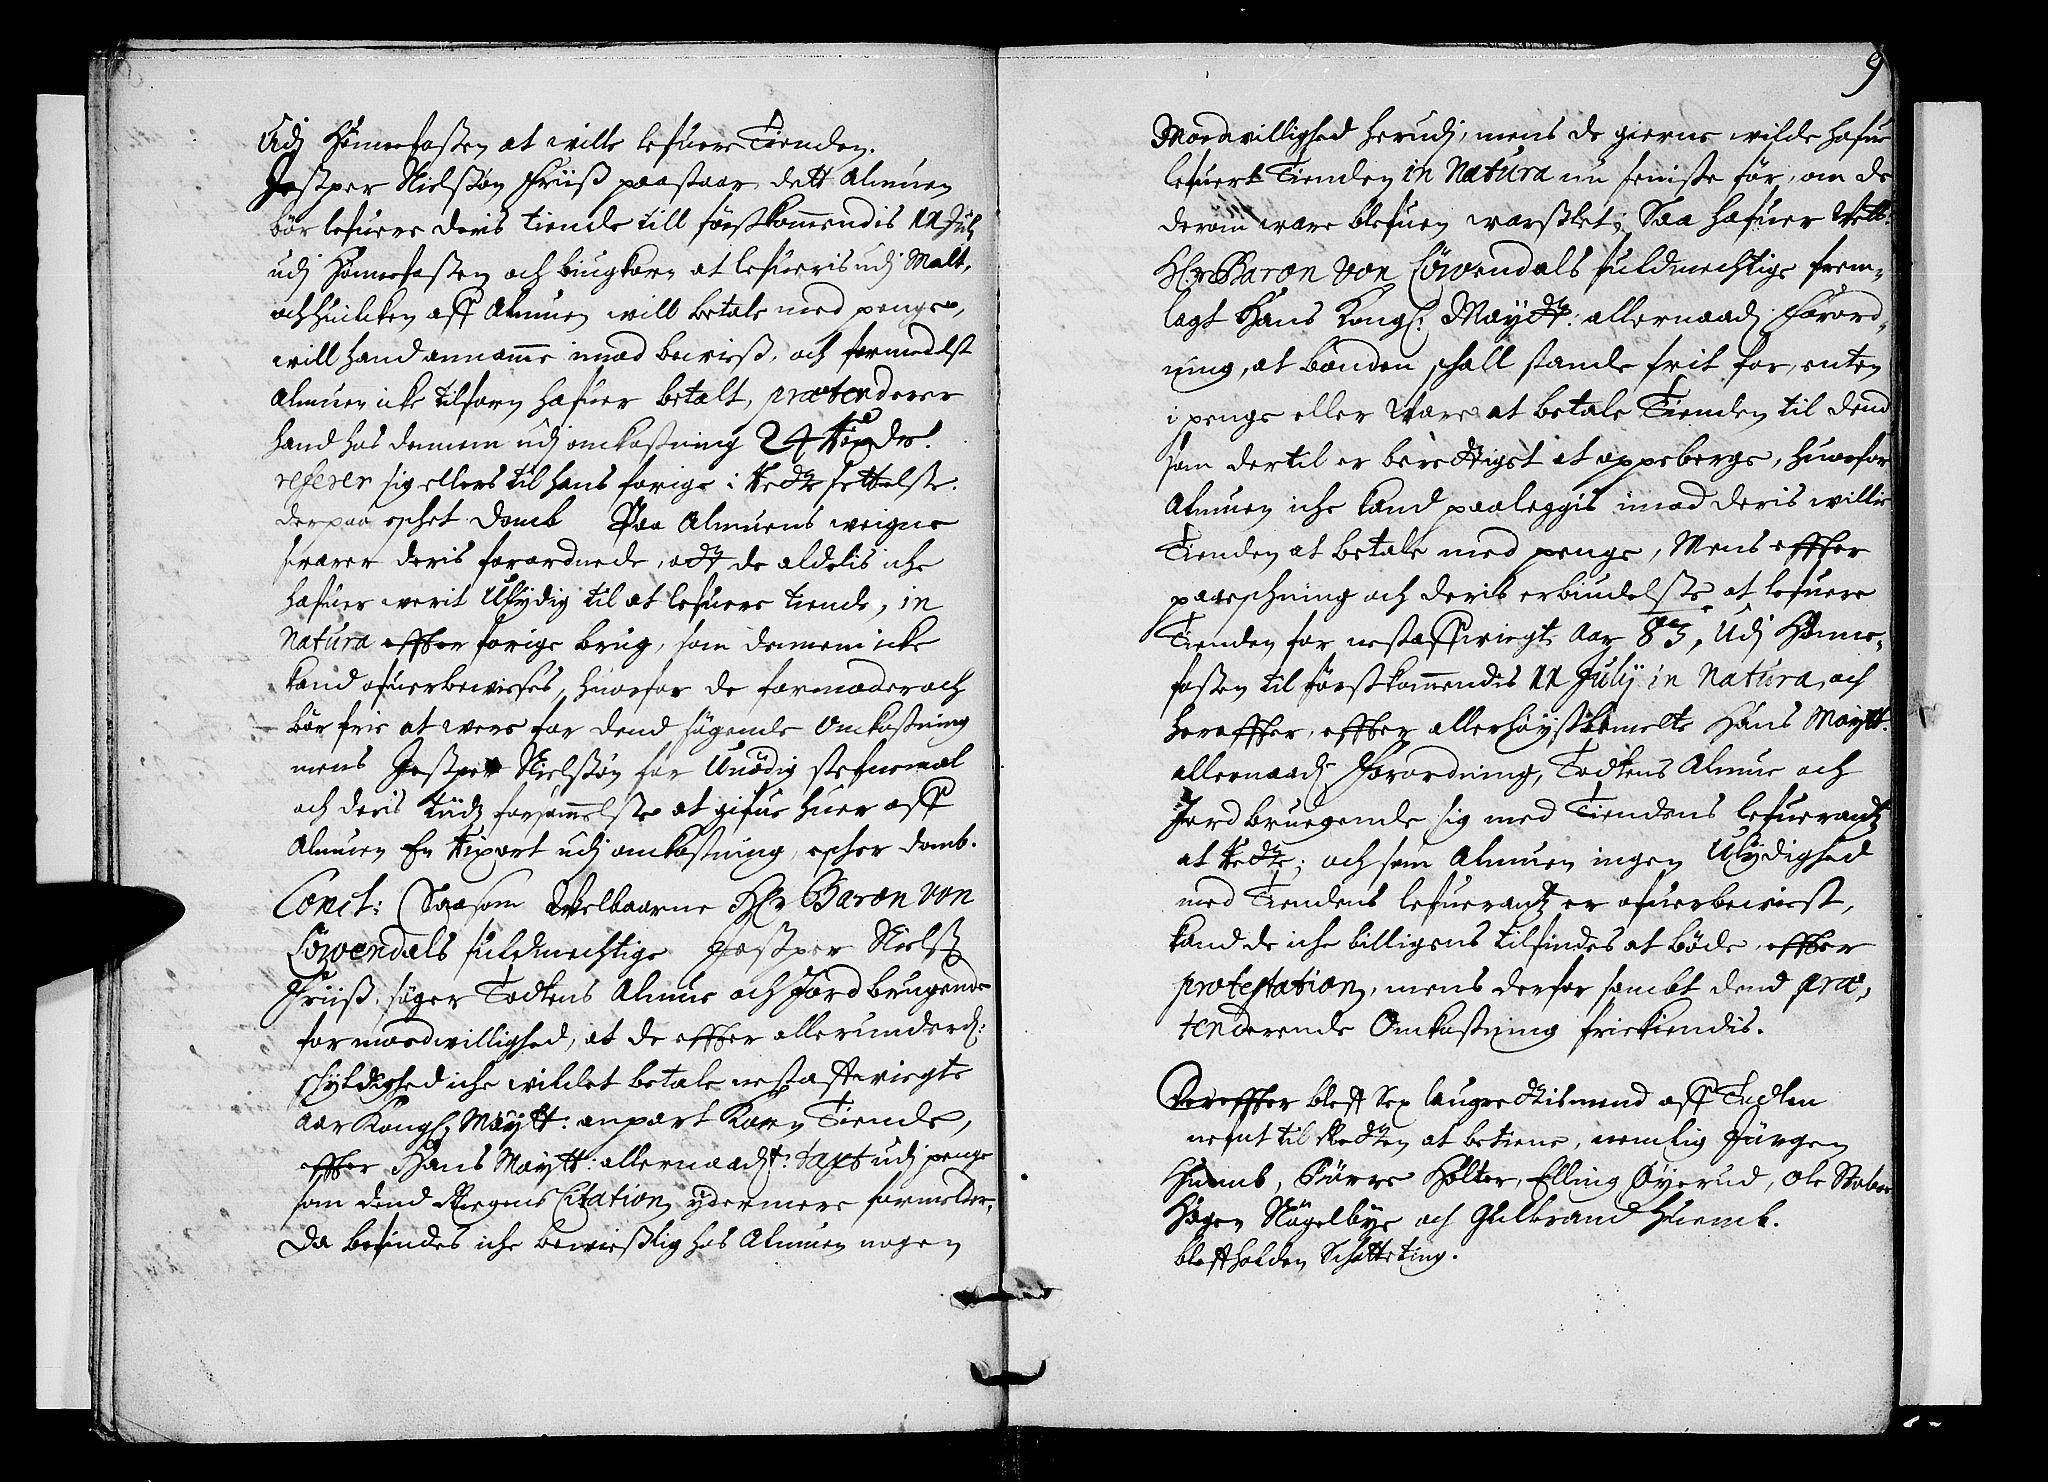 Udj Hommefossen at wille lefuere Tienden.
Jesper Nielssøn Friiss paastaar, dett Almuen
bør lefuere deris tiende till førstkommendis 11 July
udj Hommefossen och biugkorn at lefueris udj Malt,
och huilcken aff Almuen will betale med penge,
will hand annamme imod beviiss, och formedelst
Almuen icke tilforn hafuer betalt, prætenderer
hand hos dennem udj omkostning 24 Rixdr.
referer sig ellers til hans forige i Rette settelse.
derpaa eschet domb Paa Almuens weigne
svarer deris forordnede, att de aldelis iche
hafuer werit Ulydig til at lefuere tiende, in
Natura effter forige brug, som dennem icke
kand ofuerbevisses, huorfor de formoder och
bør frie at were for dend søgende Omkostning
mens Jesper Nielssøn for Unødig stefnemaal
och deris tiids forsømmelse at gifue huer aff
Almuen En Rixort udj omkostning, escher domb.
Concl: Saasom Welbaarne Hr Baron von
Löwendals fuldmechtige Jesper Niels:
Friiss, søger Todtens Almue och Jordbrugende
for modvillighed, at de effter allerunderd:
schyldighed iche wildet betale nestafvigte
aar Kongl Maytt: anpart Korn Tiende,
effter Hans Maytt: allernaadigst: taxt udj penge
som dend Skregens Citation ydermere formelder,
Da befindes iche bevisslig hos Almuen nogen
9
Modvillighed herudj, mens de gierne wilde hafue
lefuert Tienden in Natura nu seniste før, om de
derom ware blefuen warsslet; Saa hafuer Velb:
Hr Baron von Löwendals fuldmechtige frem-
lagt Hans Kongl: Maytt: allernaadj: Forord-
ning, at bonden schall stande frit for, enten
i penge eller Ware at betale Tienden til dend
som dertil er berettiget at oppeberge, huorfor
Almuen iche kand paaleggis imod deris willie
Tienden at betale med penge, Mens effter
paaeschning och deris erbiudelse at lefuere
Tienden for nestaffvigte Aar 83, Udj Homme-
fossen til førstkommendis 11 July in Natura, och
hereffter, effter allerhøystbemelte Hans Maytt:
allernaadj Forordning, Todtens Almue och
Jordbruegende sig med Tiendens lefuerantz
at Rette; och som Almuen ingen Ulydighed
med Tiendens lefuerantz er ofuerbeviist,
kand de iche billigens tilfindes at bøde effter
protestation, mens derfor sambt dend præ-
tenderende Omkostning friekiendis.
Dereffter bleff Sex laugrettismend aff Todten
nefnt til Retten at betiene, nemlig Jürgen
Huemb, Børre Holter, Elling Øyerud, Ole Stabo
Hogen Nøgelbye och Gulbrand Huemb.
bleff holden Schatteting.